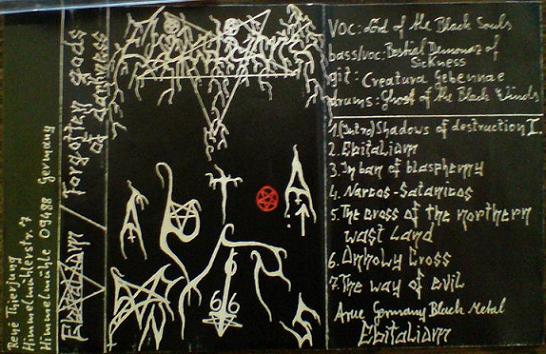 René Thierjung
Himmelmühlerstr. 7
Himmelmühle 09488 Germany
Ebitaliam
Forgotten gods
of darkness
666
Voc: Lord of the Black Souls
bass/voc: Bestial Demonaz of
Sickness
git: Creatura Gehennae
drums: Ghost of the Black Winds
1. (Intro) Shadows of destruction I.
2. Ebitaliam
3. In ban of blasphemy
4. Narcos-Satanicos
5. The cross of the northern
wast Land
6. Unholy Cross
7. The way of evil
True Germany Black Metal
Ebitaliam